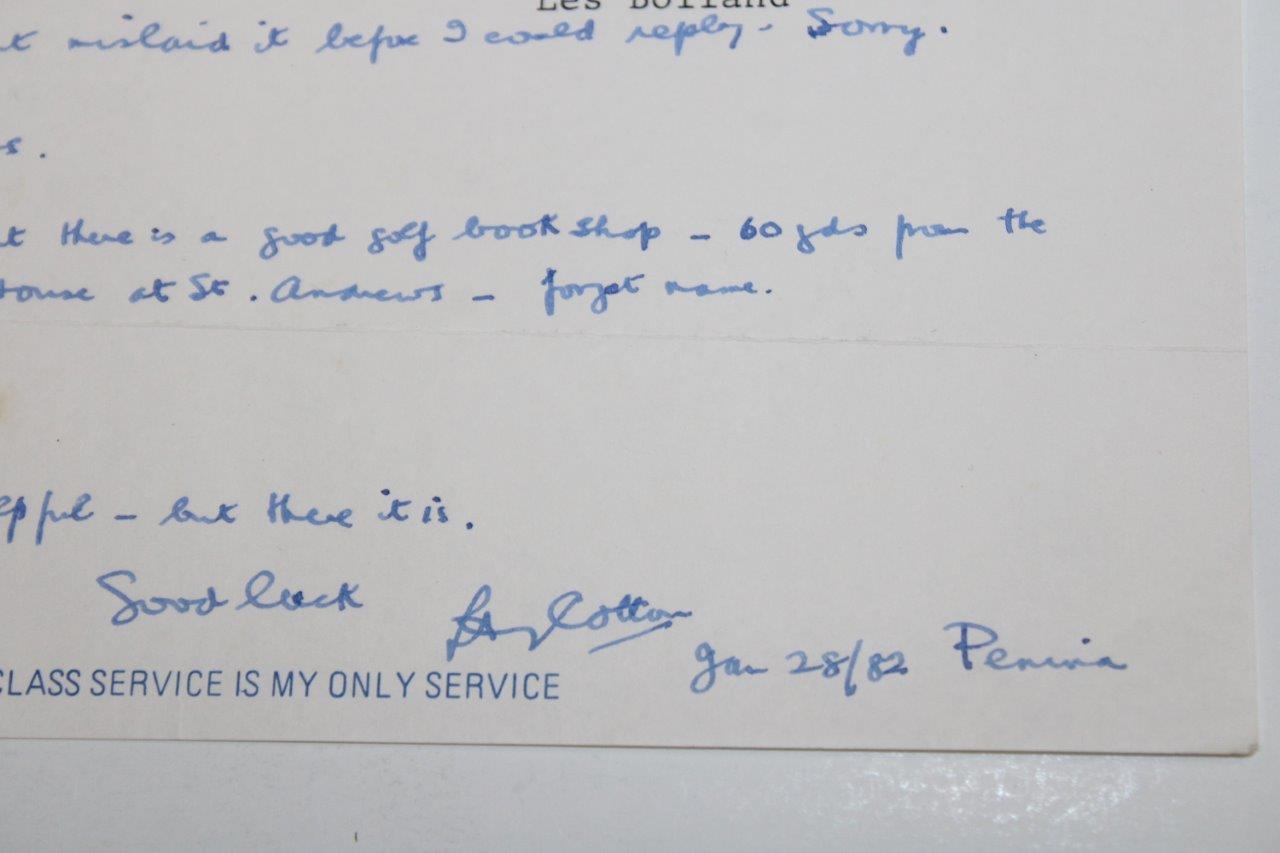 Les Bolland
t mislaid it before I could reply - Sorry.
s.
t there is a good golf book shop - 60 yds from the
ouse at St. Andrews - forget name.
lpful - but there it is.
Good luck Cotton
Jan 28/82 Penina
CLASS SERVICE IS MY ONLY SERVICE